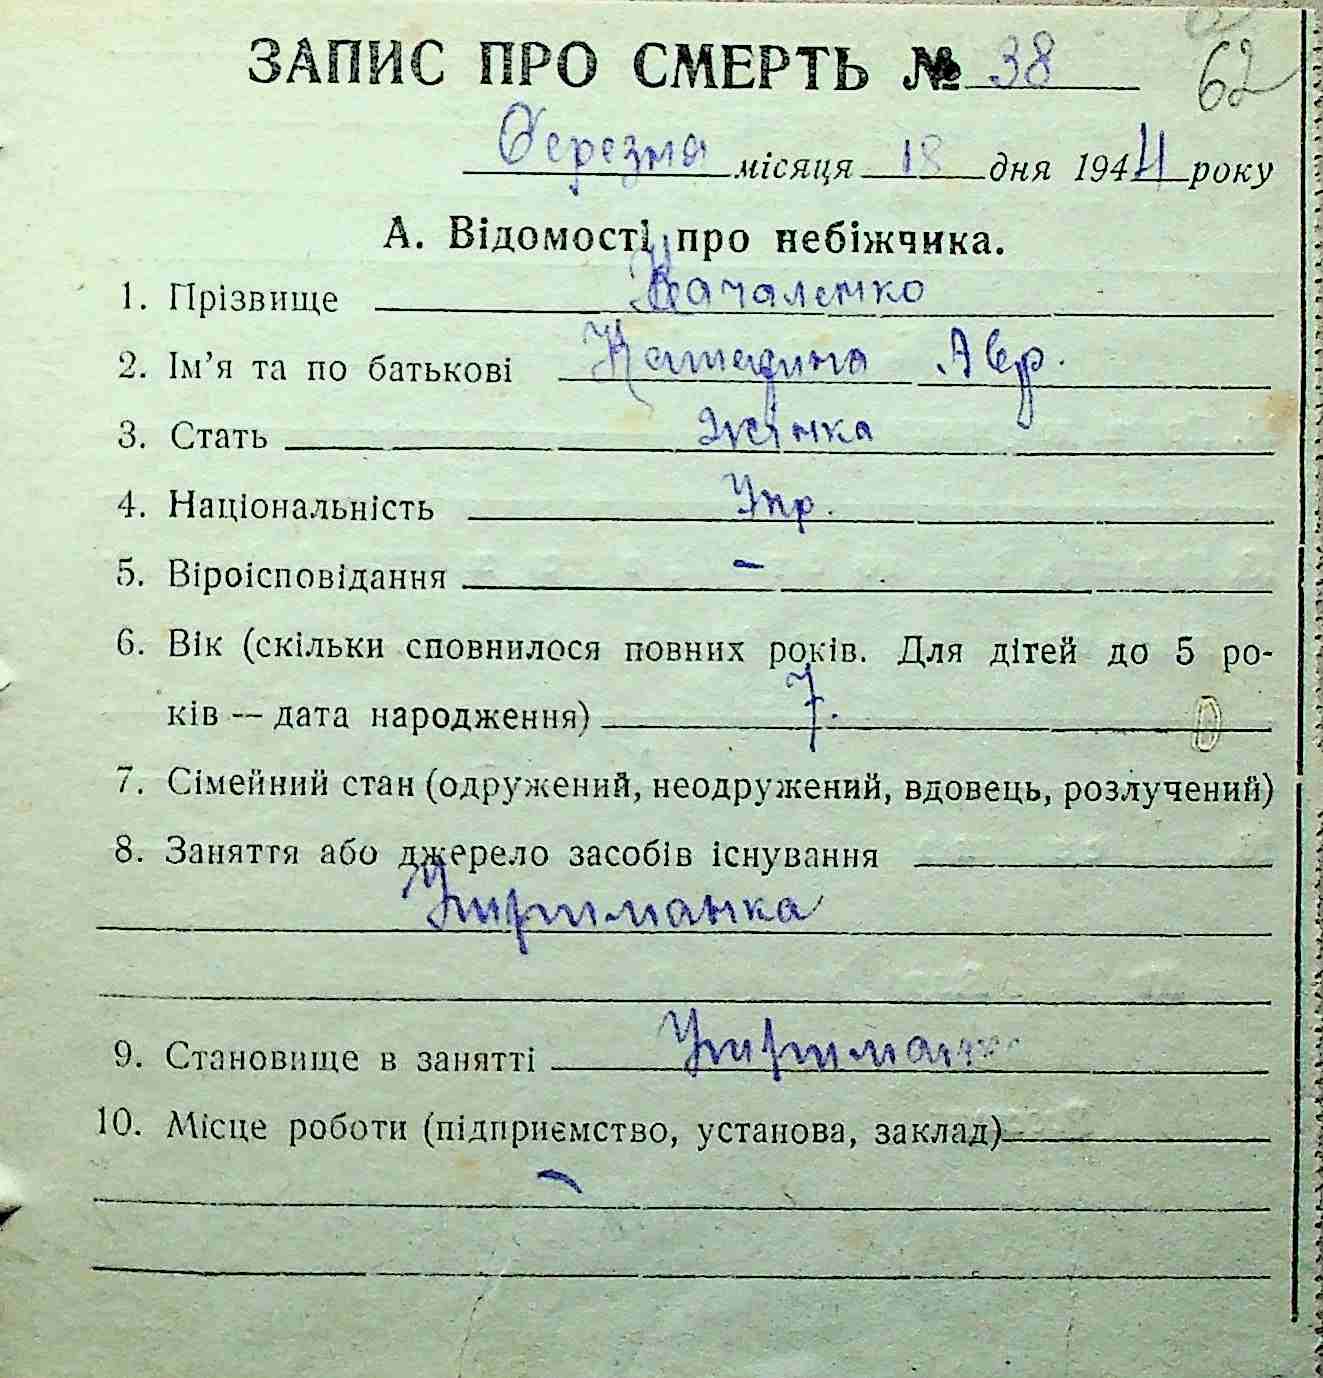 ЗАПИС ПРО СМЕРТЬ № 38
62
Березня місяця 18 дня 1944 року
А. Відомості про небіжчика.
1. Прізвище Качаленко
2. Ім’я та по батькові Катерина Авр.
3. Стать жінка
4. Національність Укр.
5. Віроісповідання –
6. Вік (скільки сповнилося повних років. Для дітей до 5 ро-
ків — дата народження) 7.
7. Сімейний стан (одружений, неодружений, вдовець, розлучений)
8. Заняття або джерело засобів існування
Утриманка
9. Становище в занятті Утриманка
10. Місце роботи (підприємство, установа, заклад)
–